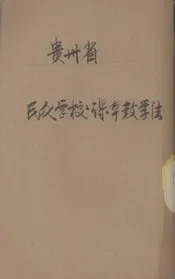 贵州省
民众学校课本教学法